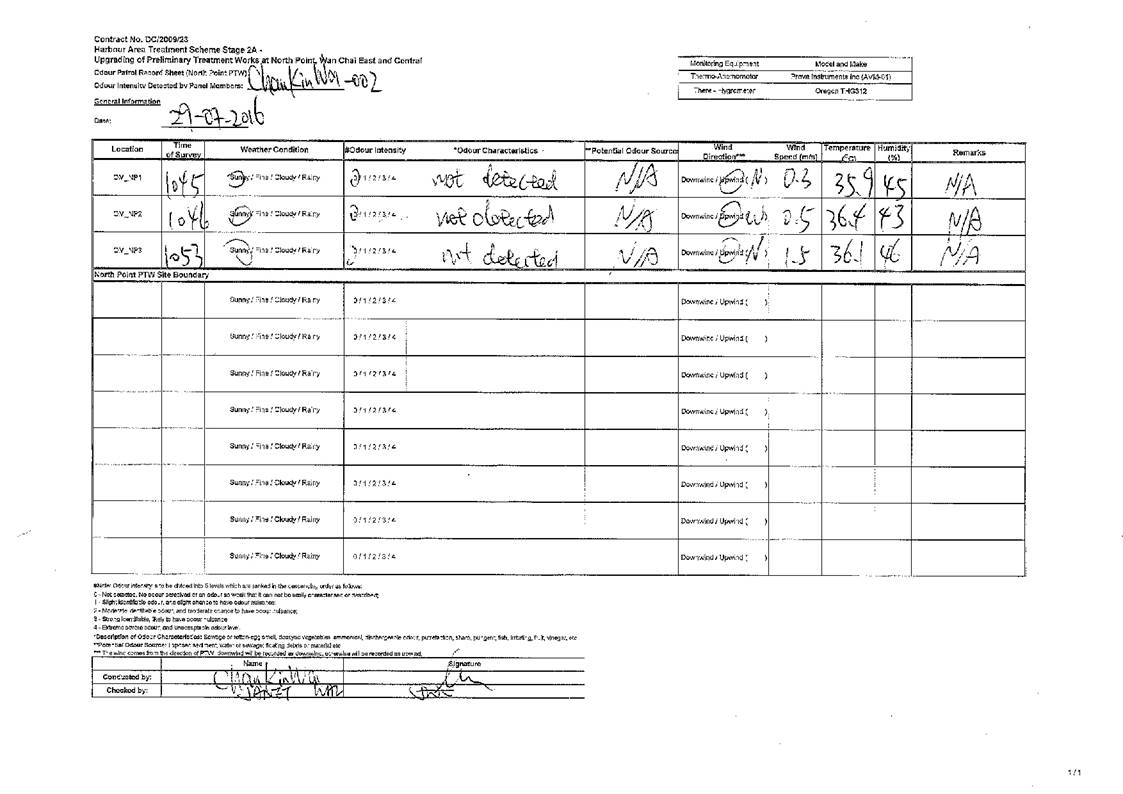 Contract No. DC/2009/23
Harbour Area Treatment Scheme Stage 2A -
Upgrading of Preliminary Treatment Works at North Point, Wan Chai East and Central
Odour Patrol Record Sheet (North Point PTW)
Odour Intensity Detected by Panel Members: Chan Kin Wa -002
Monitoring Equipment Model and Make
Thermo-Anemometer Prova Instruments Inc (AVM-01)
Thermo-Hygrometer Oregon THG312
General Information
Date: 29-07-2016
Location Time of Survey Weather Condition #Odour Intensity *Odour Characteristics - **Potential Odour Source Wind Direction*** Wind Speed (m/s) Temperature (°C) Humidity (%) Remarks
OM_NP1 1045 Sunny / Fine / Cloudy / Rainy 0 / 1 / 2 / 3 / 4 not detected N/A Downwind / Upwind ( N ) 0.3 35.9 45 N/A
OM_NP2 1046 Sunny / Fine / Cloudy / Rainy 0 / 1 / 2 / 3 / 4 not detected N/A Downwind / Upwind 0.5 36.4 43 N/A
OM_NP3 1053 Sunny / Fine / Cloudy / Rainy 0 / 1 / 2 / 3 / 4 not detected N/A Downwind / Upwind ( N ) 1.5 36.1 46 N/A
North Point PTW Site Boundary
Sunny / Fine / Cloudy / Rainy 0 / 1 / 2 / 3 / 4 Downwind / Upwind ( )
Sunny / Fine / Cloudy / Rainy 0 / 1 / 2 / 3 / 4 Downwind / Upwind ( )
Sunny / Fine / Cloudy / Rainy 0 / 1 / 2 / 3 / 4 Downwind / Upwind ( )
Sunny / Fine / Cloudy / Rainy 0 / 1 / 2 / 3 / 4 Downwind / Upwind ( )
Sunny / Fine / Cloudy / Rainy 0 / 1 / 2 / 3 / 4 Downwind / Upwind ( )
Sunny / Fine / Cloudy / Rainy 0 / 1 / 2 / 3 / 4 Downwind / Upwind ( )
Sunny / Fine / Cloudy / Rainy 0 / 1 / 2 / 3 / 4 Downwind / Upwind ( )
Sunny / Fine / Cloudy / Rainy 0 / 1 / 2 / 3 / 4 Downwind / Upwind ( )
#Note: Odour intensity is to be divided into 5 levels which are ranked in the descending order as follows:
0 - Not detected. No odour perceived or an odour so weak that it can not be easily characterised or described;
1 - Slight identifiable odour, and slight chance to have odour nuisance;
2 - Moderate identifiable odour, and moderate chance to have odour nuisance;
3 - Strong identifiable, likely to have odour nuisance
4 - Extreme severe odour, and unacceptable odour level.
*Description of Odour Characteristics: Sewage or rotten-egg smell, decayed vegetables, ammonical, dischargeable odour, putrefaction, sharp, pungent, fish, irritating, fruit, vinegar, etc
**Potential Odour Source: Exposed sediment, water or sewage; floating debris or material etc
*** The wind comes from the direction of PTW, downwind will be recorded as downwind, otherwise will be recorded as upwind.
Name Signature
Conducted by: Chan Kin Wa
Checked by: JANET
1 / 1